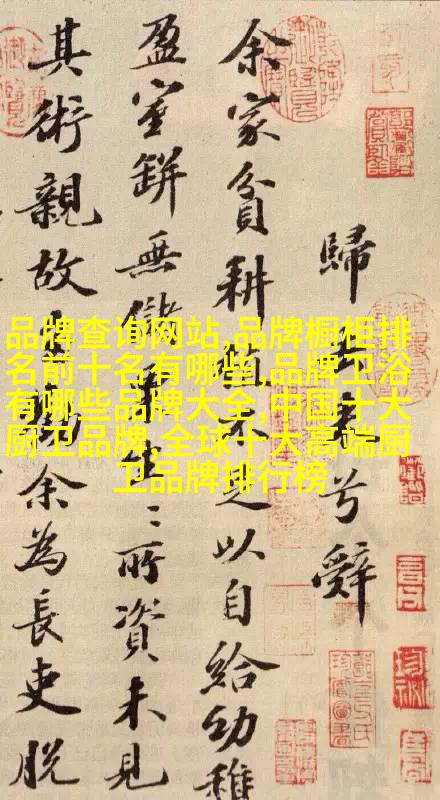 品牌查询网站,品牌橱柜排
名前十名有哪些,品牌卫浴
有哪些品牌大全,中国十大
厨卫品牌,全球十大高端厨
卫品牌排行榜
歸去來兮辭
余家貧耕植不足以自給幼稚
盈室缾無儲粟生〻所資未見
其術親故多勸余為長吏脫